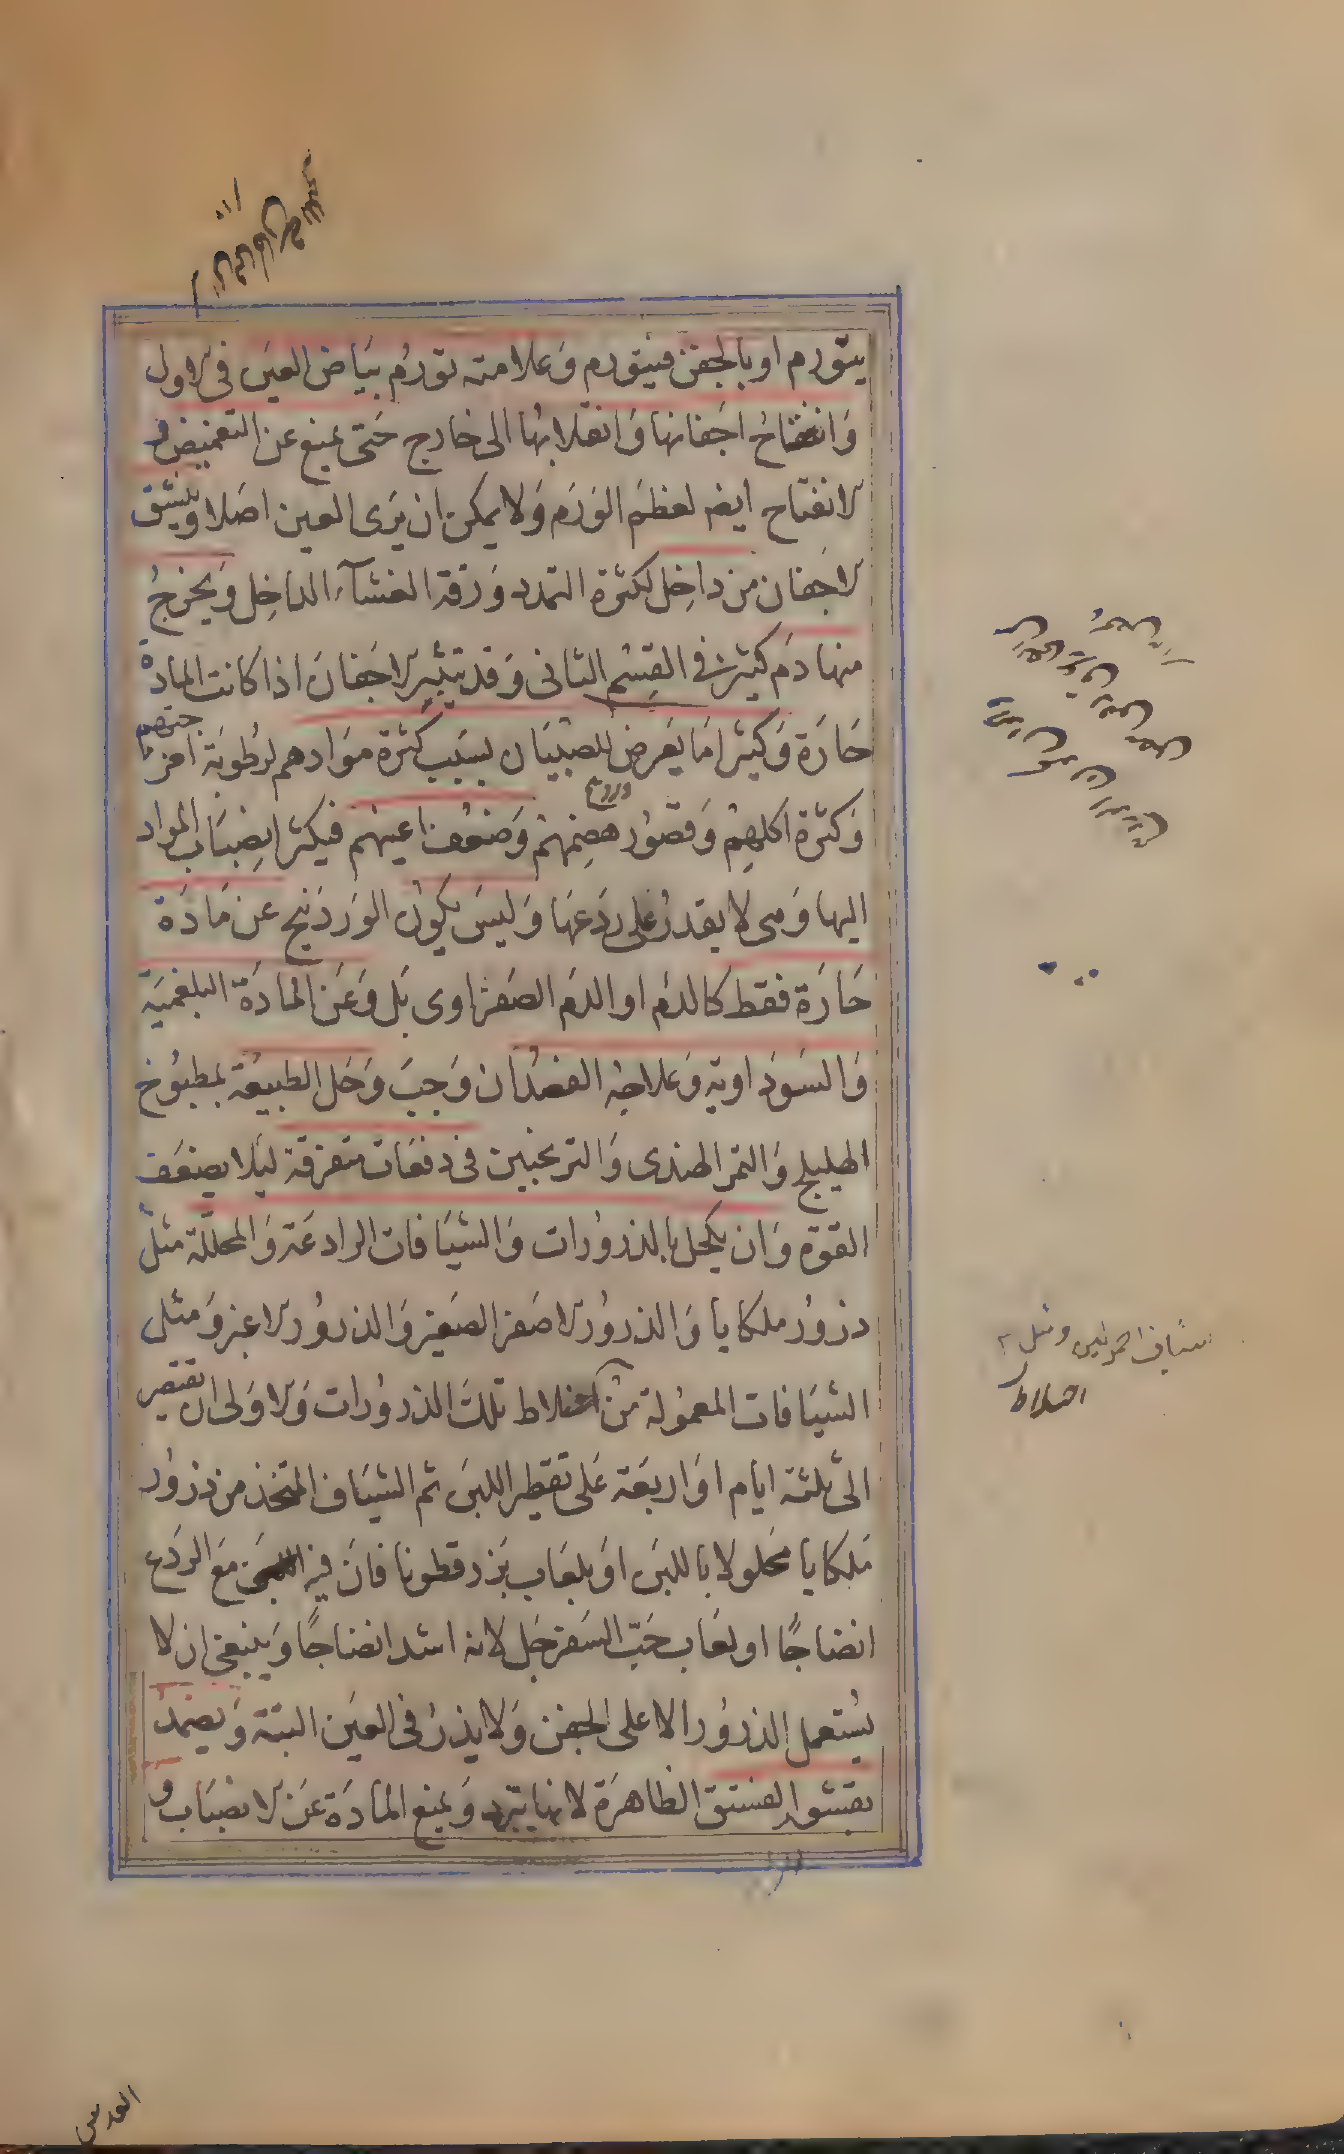 يتورم او بالجفن فيتورم وَعلامته تورُم بيَاض العيَن فى الاول
وَانفتاحُ اجَفانها وَانقلابُها الى خارج حَتى يمنع عن التغميض و
الانفتاح ايضا لعظَم الوَرَم وَلا يمكن ان يَرَى العين اصَلا وينشق
الاجَفان من داخِل لكثرة التمدد وَرقة الغشآء الداخِل وَيخرجُ
منها دَم كثير فى القِسْم الثانى وَقد يتبثر الاجَفانَ اذا كانت المادة
حَارَة وَكثيرا مَا يَعرضُ للصّبْيَان بسَبَب كثرة موَادهم لرطُوبَة امزجتهم
وَكثرة اكلهِمْ وَقصُور هضِمهمْ وَضعُف اعينهم فيكثر انِصبَاب المواد
اليها وَهى لا يقدرُ على ردَعهَا وَليسَ يكون الوَردَينج عن مَادَة
حَارَة فقط كالدم او الدَم الصَفراوى بَل وَعَن المادَة البلغميَة
وَالسَودَاوية وَعلاجُه الفصْدُ ان وَجبَ وَحَل الطبيعَة بمطبُوخ
الهليلج وَالتمر الهندى وَالترنجبين فى دفعَات متفرقة ليَلا يضعَف
القوة وَان يكحل بالذرورات وَالشيَافات الرادعَة وَالمحللّة مثلْ
ذرور ملكايا وَالذرورُ الاصَفر الصَغير وَالذرورُ الاغبر وَمثلى
الشيَافات المعمُولة منْ اخلاط تلك الذرورَات وَالاوَلى ان يقتصر
الى ثلثة ايام اوَ اربعَة عَلى تقطير اللبن ثم الشيَاف المتخذ من ذرُور
مَلكايا مَحلولا باللبن اوَ بلعَاب بَزر قطونا فان فيهِ مَعَ الردَع
انضاجًا او لعَاب حَبّ السَفرجَل لانه اشد انضاجًا وَينبغى ان لا
يُستعمل الذرُور الا على الجفن وَلا يذرُ فى العيَن البتة وَيضمد
بقشور الفستق الظاهرَة لانها تبرد وَيمنع المادَة عَن الانصبَاب و
شياف احمر لين ومثل
اخلاط